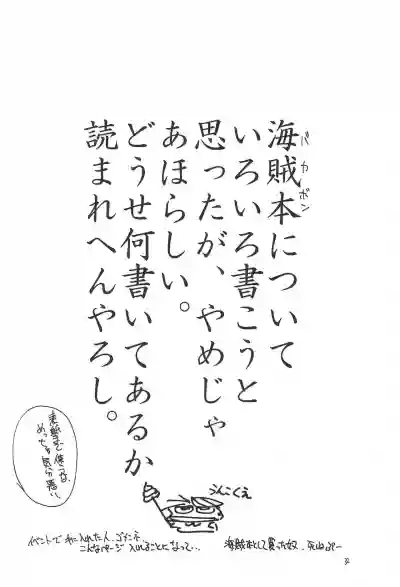 海賊本について
バカボン
いろいろ書こうと
思ったが、やめじゃ
あほらしい。
どうせ何書いてあるか
読まれへんやろし。
表紙まで使うな、
めっちゃ気分悪い。
うんこくえ
イベントで本に入れた人、ゴメンネ
こんなページ入れることになって…
海賊本として買った奴、死ねよー